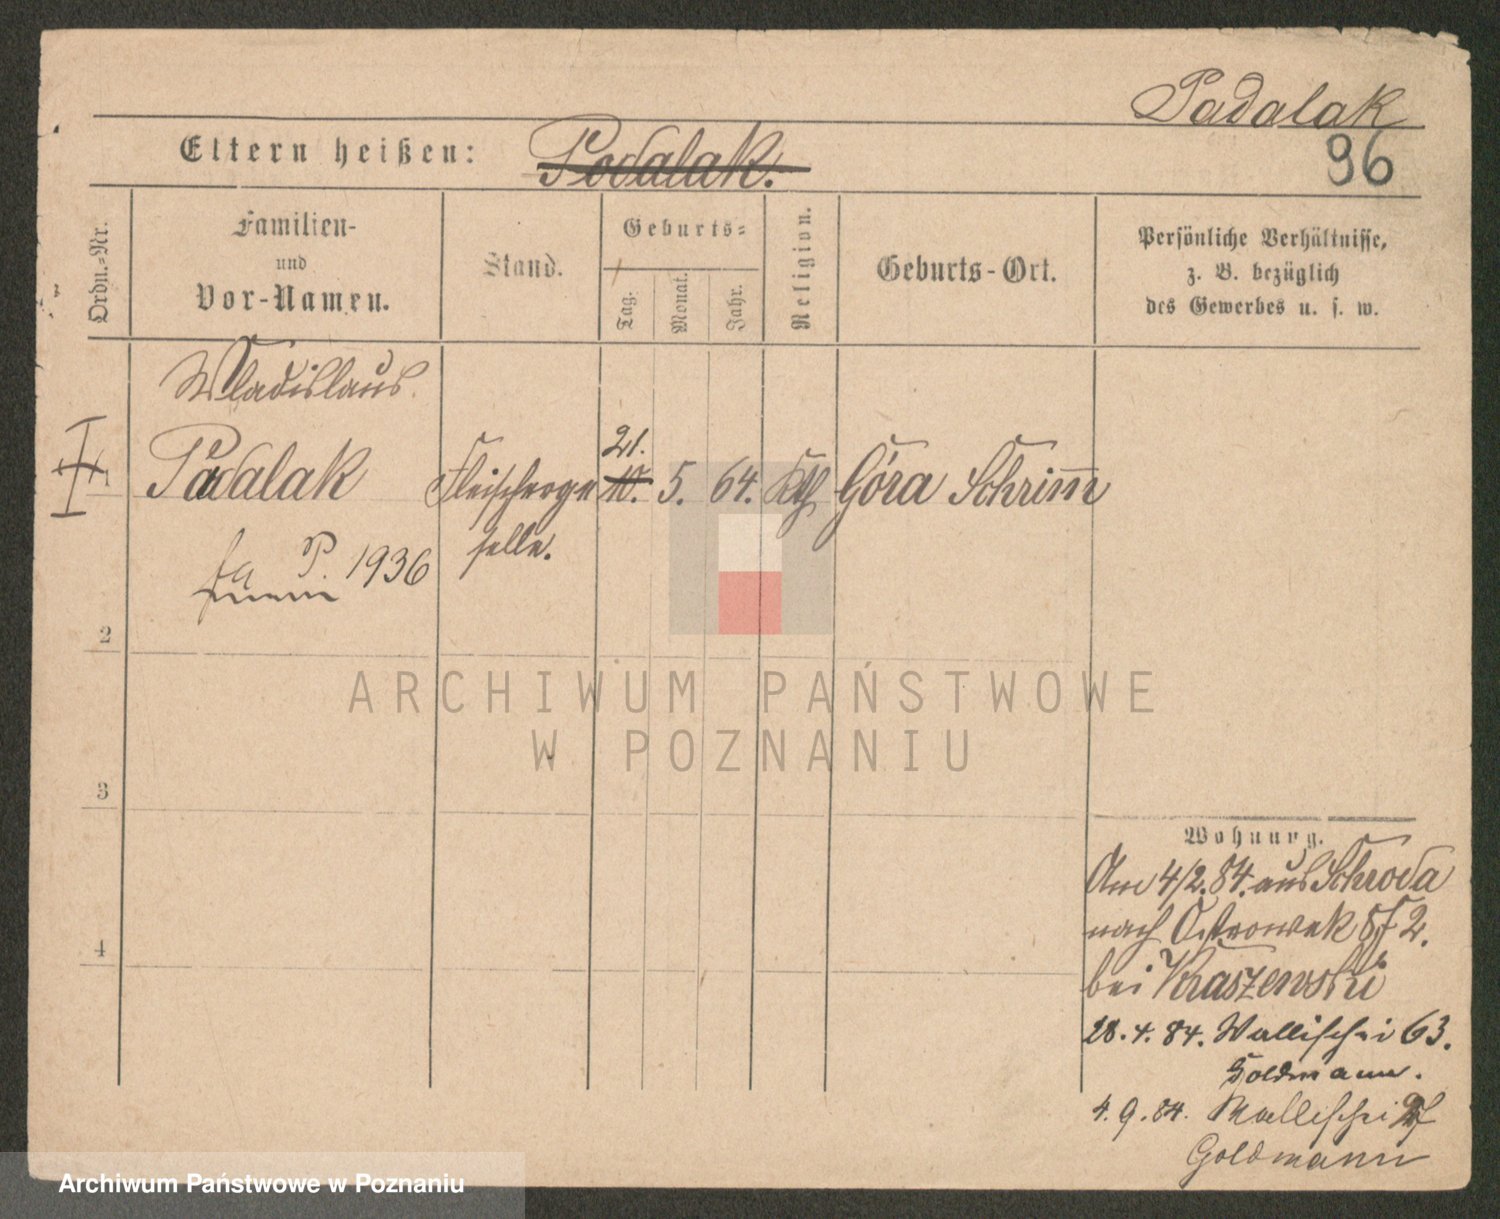 Padalak
96
Eltern heißen: Podalak.
Ordn.-Nr.
Familien-
und
Vor-Namen.
Stand.
Geburts-
Tag.
Monat.
Jahr.
Religion.
Geburts-Ort.
Persönliche Verhältnisse,
z. B. bezüglich
des Gewerbes u. s. w.
Wladislaus
21.
1 Padalak Fleischerge 10. 5. 64. Kth Góra Schrimm
selle.
P. 1936
2
ARCHIWUM PAŃSTWOWE
W POZNANIU
3
Wohnung.
Am 4/2. 84. aus Schroda
nach Ostrowek 2.
4
bei Kraszewski
28. 4. 84. Wallischei 63.
Goldmann.
4. 9. 84. Wallischei
Goldmann
Archiwum Państwowe w Poznaniu